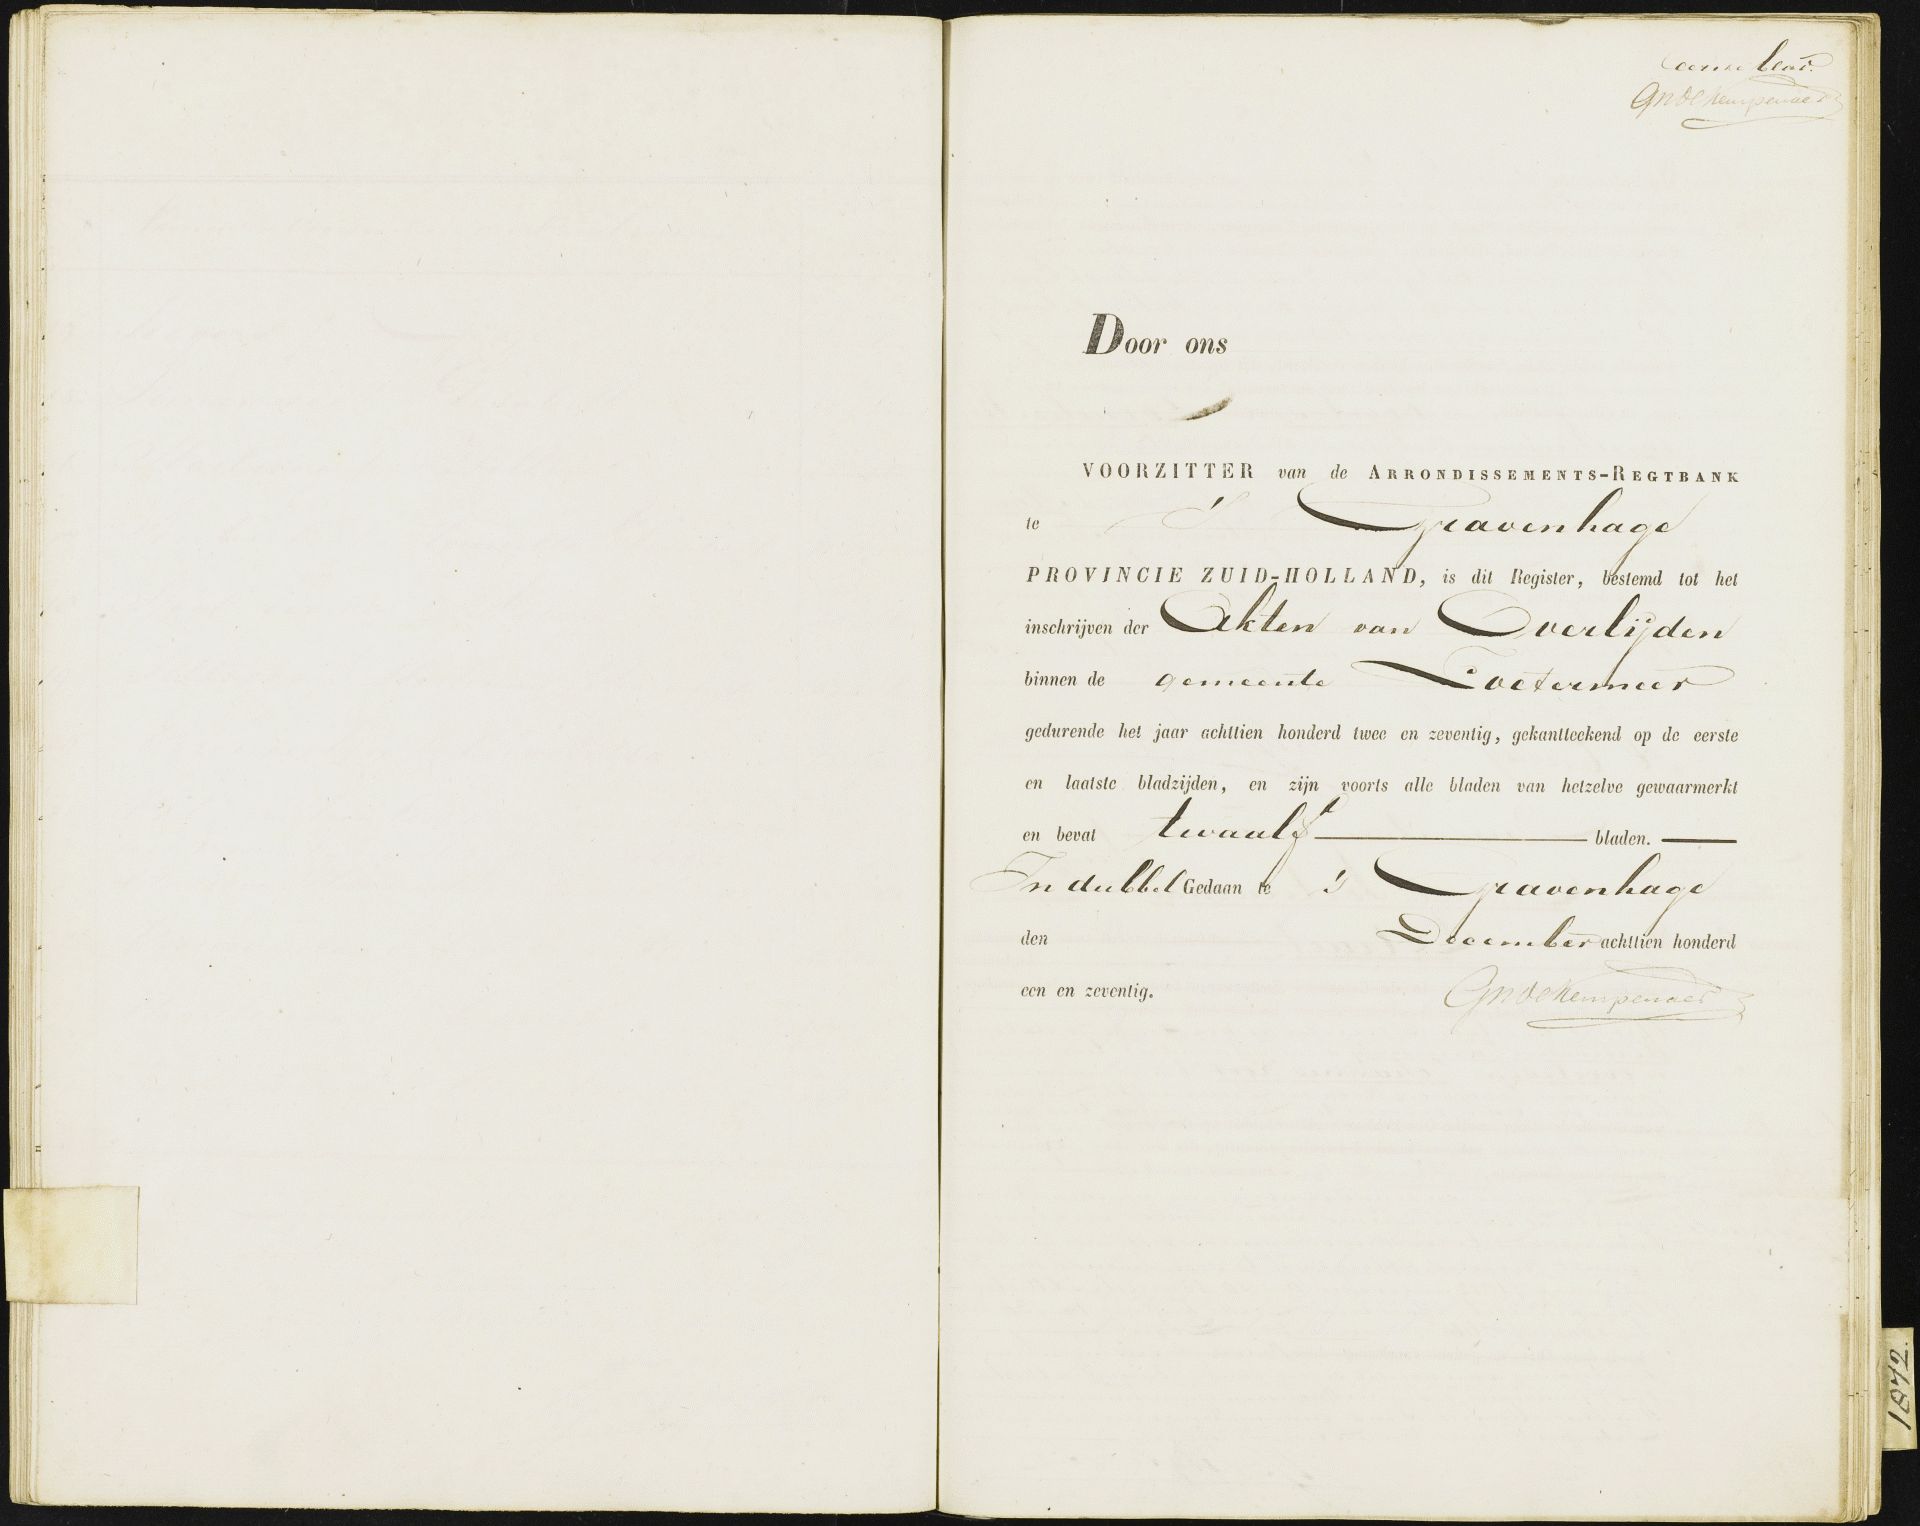 eerste blad.
GM de Kempenaer
Door ons
VOORZITTER van de ARRONDISSEMENTS-REGTBANK
te 's Gravenhage
PROVINCIE ZUID-HOLLAND, is dit Register, bestemd tot het
inschrijven der Akten van Overlijden
binnen de gemeente Zoetermeer
gedurende het jaar achttien honderd twee en zeventig, gekantteekend op de eerste
en laatste bladzijden, en zijn voorts alle bladen van hetzelve gewaarmerkt
en bevat twaalf bladen.
In dubbel Gedaan te 's Gravenhage
den December achttien honderd
een en zeventig.
GM de Kempenaer
1872.